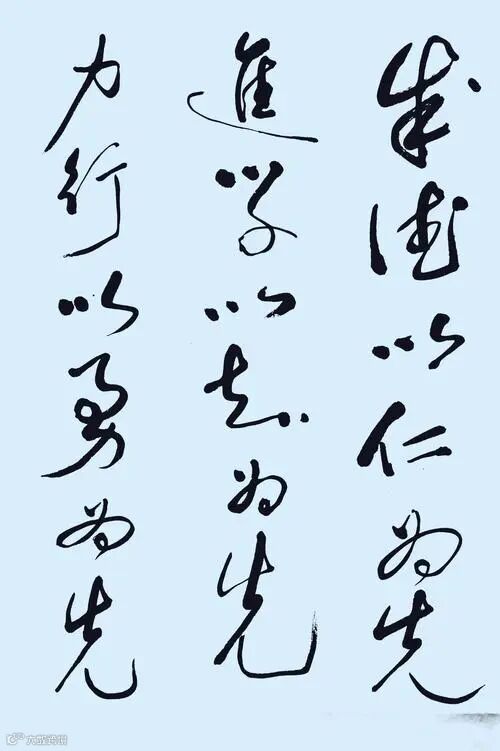 成德以仁为先
進学以知为先
力行以勇为先